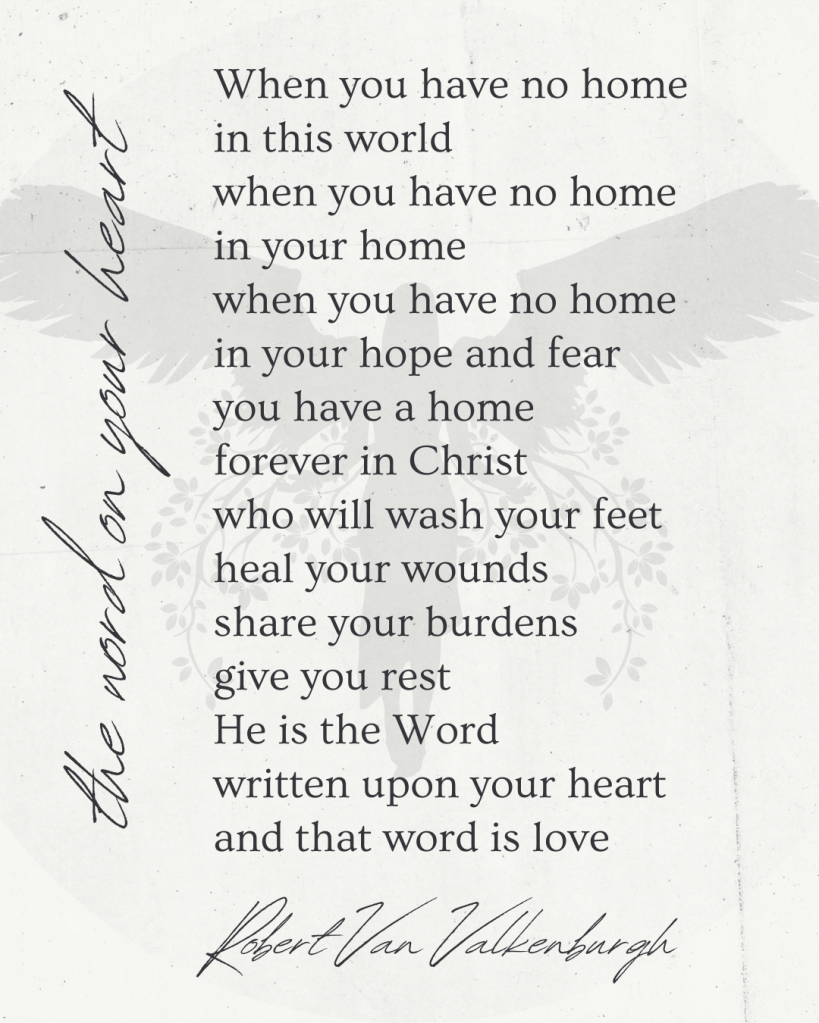 the word on your heart
When you have no home
in this world
when you have no home
in your home
when you have no home
in your hope and fear
you have a home
forever in Christ
who will wash your feet
heal your wounds
share your burdens
give you rest
He is the Word
written upon your heart
and that word is love
Robert Van Valkenburgh